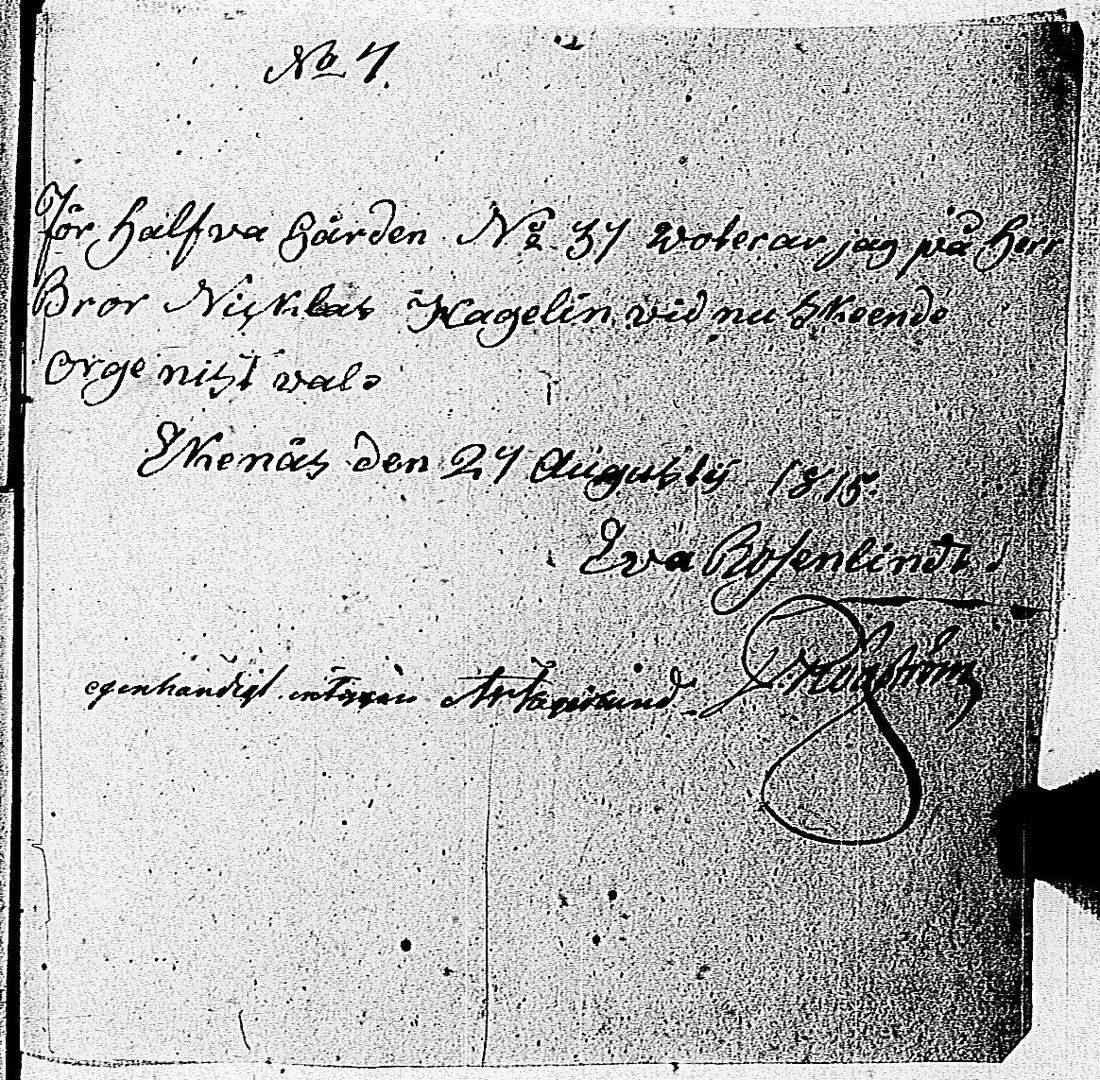 No 7.
För halfva Gården No 37 voterar jag på Herr
Bror Nicklas Hagelin vid nu skeende
Orgenist val.
Ekenäs den 27 Augusty 1815.
Eva Rosenlindt
egenhändigt